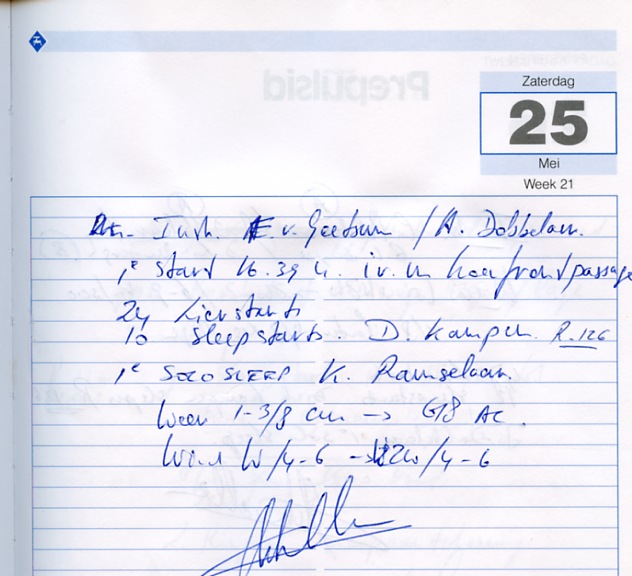 Zaterdag
25
Mei
Week 21
Instr. v. / A. Dobbelaar.
1e start 16.39 u. i.v.m koufrontpassage
24 Lierstarts
10 Sleepstarts. D. Kamper R.126
1e SOLO SLEEP K. Ramselaar.
Weer 1-3/8 cu → 6/8 AC.
Wind W/4-6 → /4-6